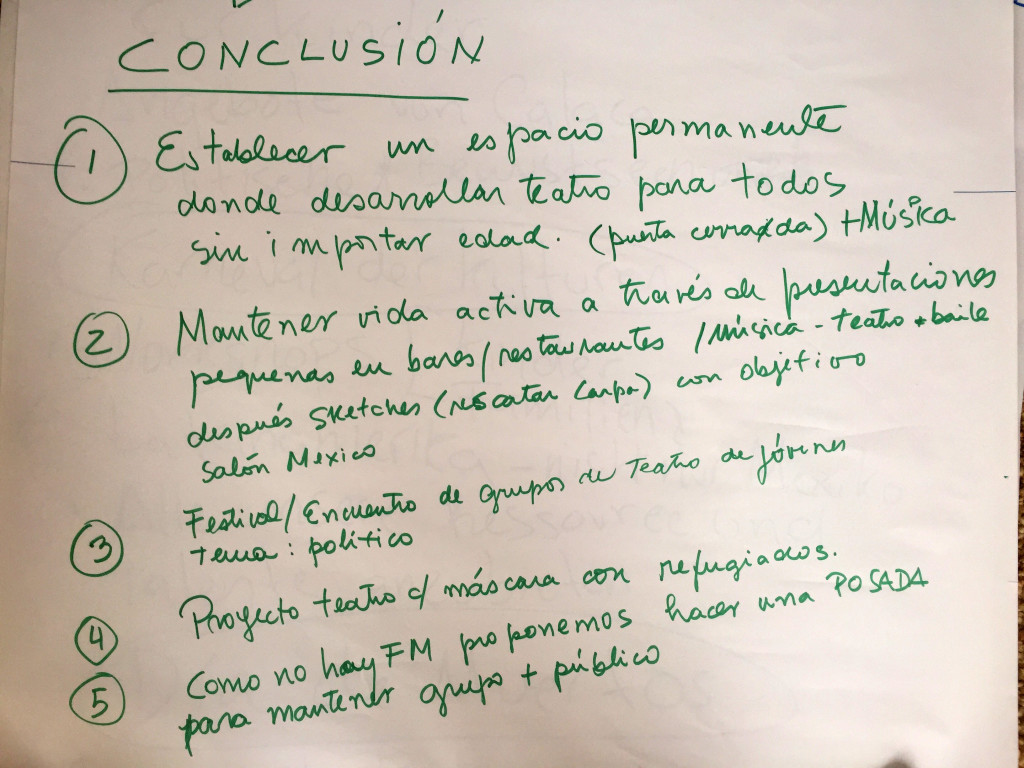 CONCLUSIÓN
1 Establecer un espacio permanente
donde desarrollar teatro para todos
sin importar edad. (puerta cerrada) + Música
2 Mantener vida activa a través de presentaciones
pequenas en bares/restaurantes /música - teatro + baile
después sketches (rescatar Carpa) con objetivo
Salón Mexico
3 Festival/Encuentro de grupos de Teatro de jóvenes
tema: político
4 Proyecto teatro c/ máscara con refugiados.
5 Como no hay FM proponemos hacer una POSADA
para mantener grupo + público